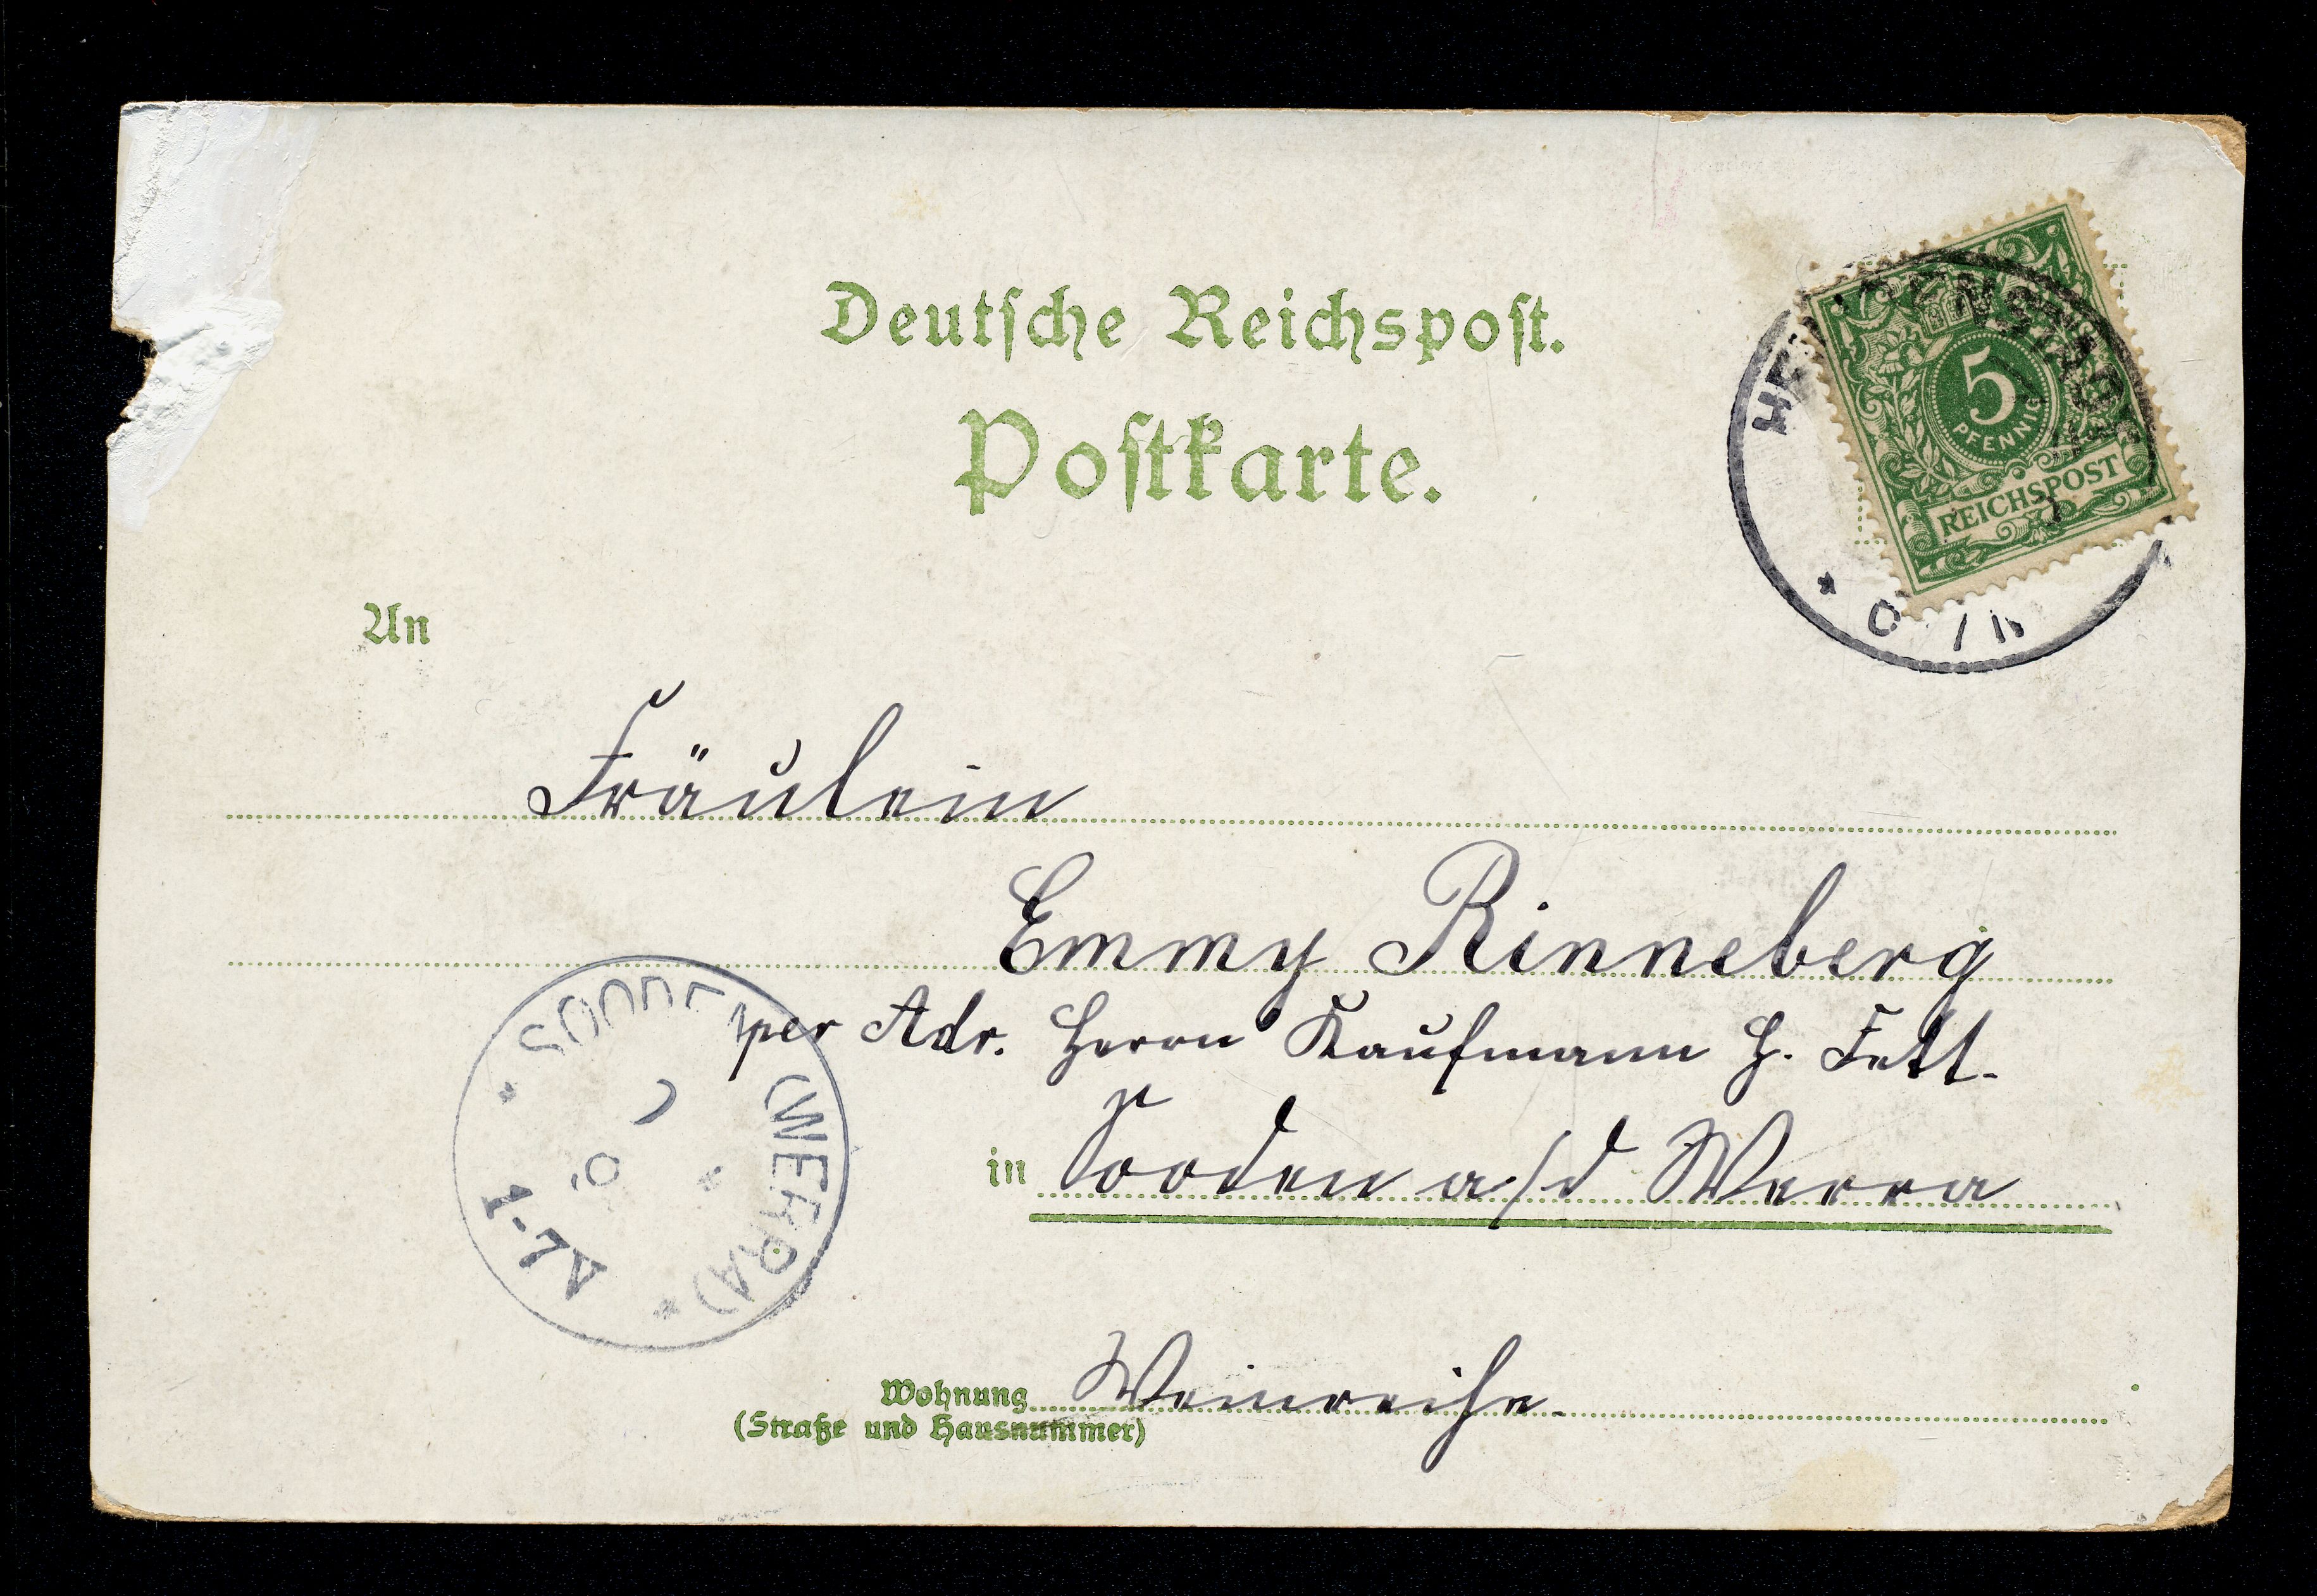 Deutsche Reichspost.
Postkarte.
5
PFENNIG
REICHSPOST
An
Fräulein
Emmy Rinneberg
per Adr. Herrn Kaufmann H. Fett.
in Sooden a/d Werra
SOODEN (WERRA)
1-7V
Wohnung Weinreihe.
(Straße und Hausnummer)